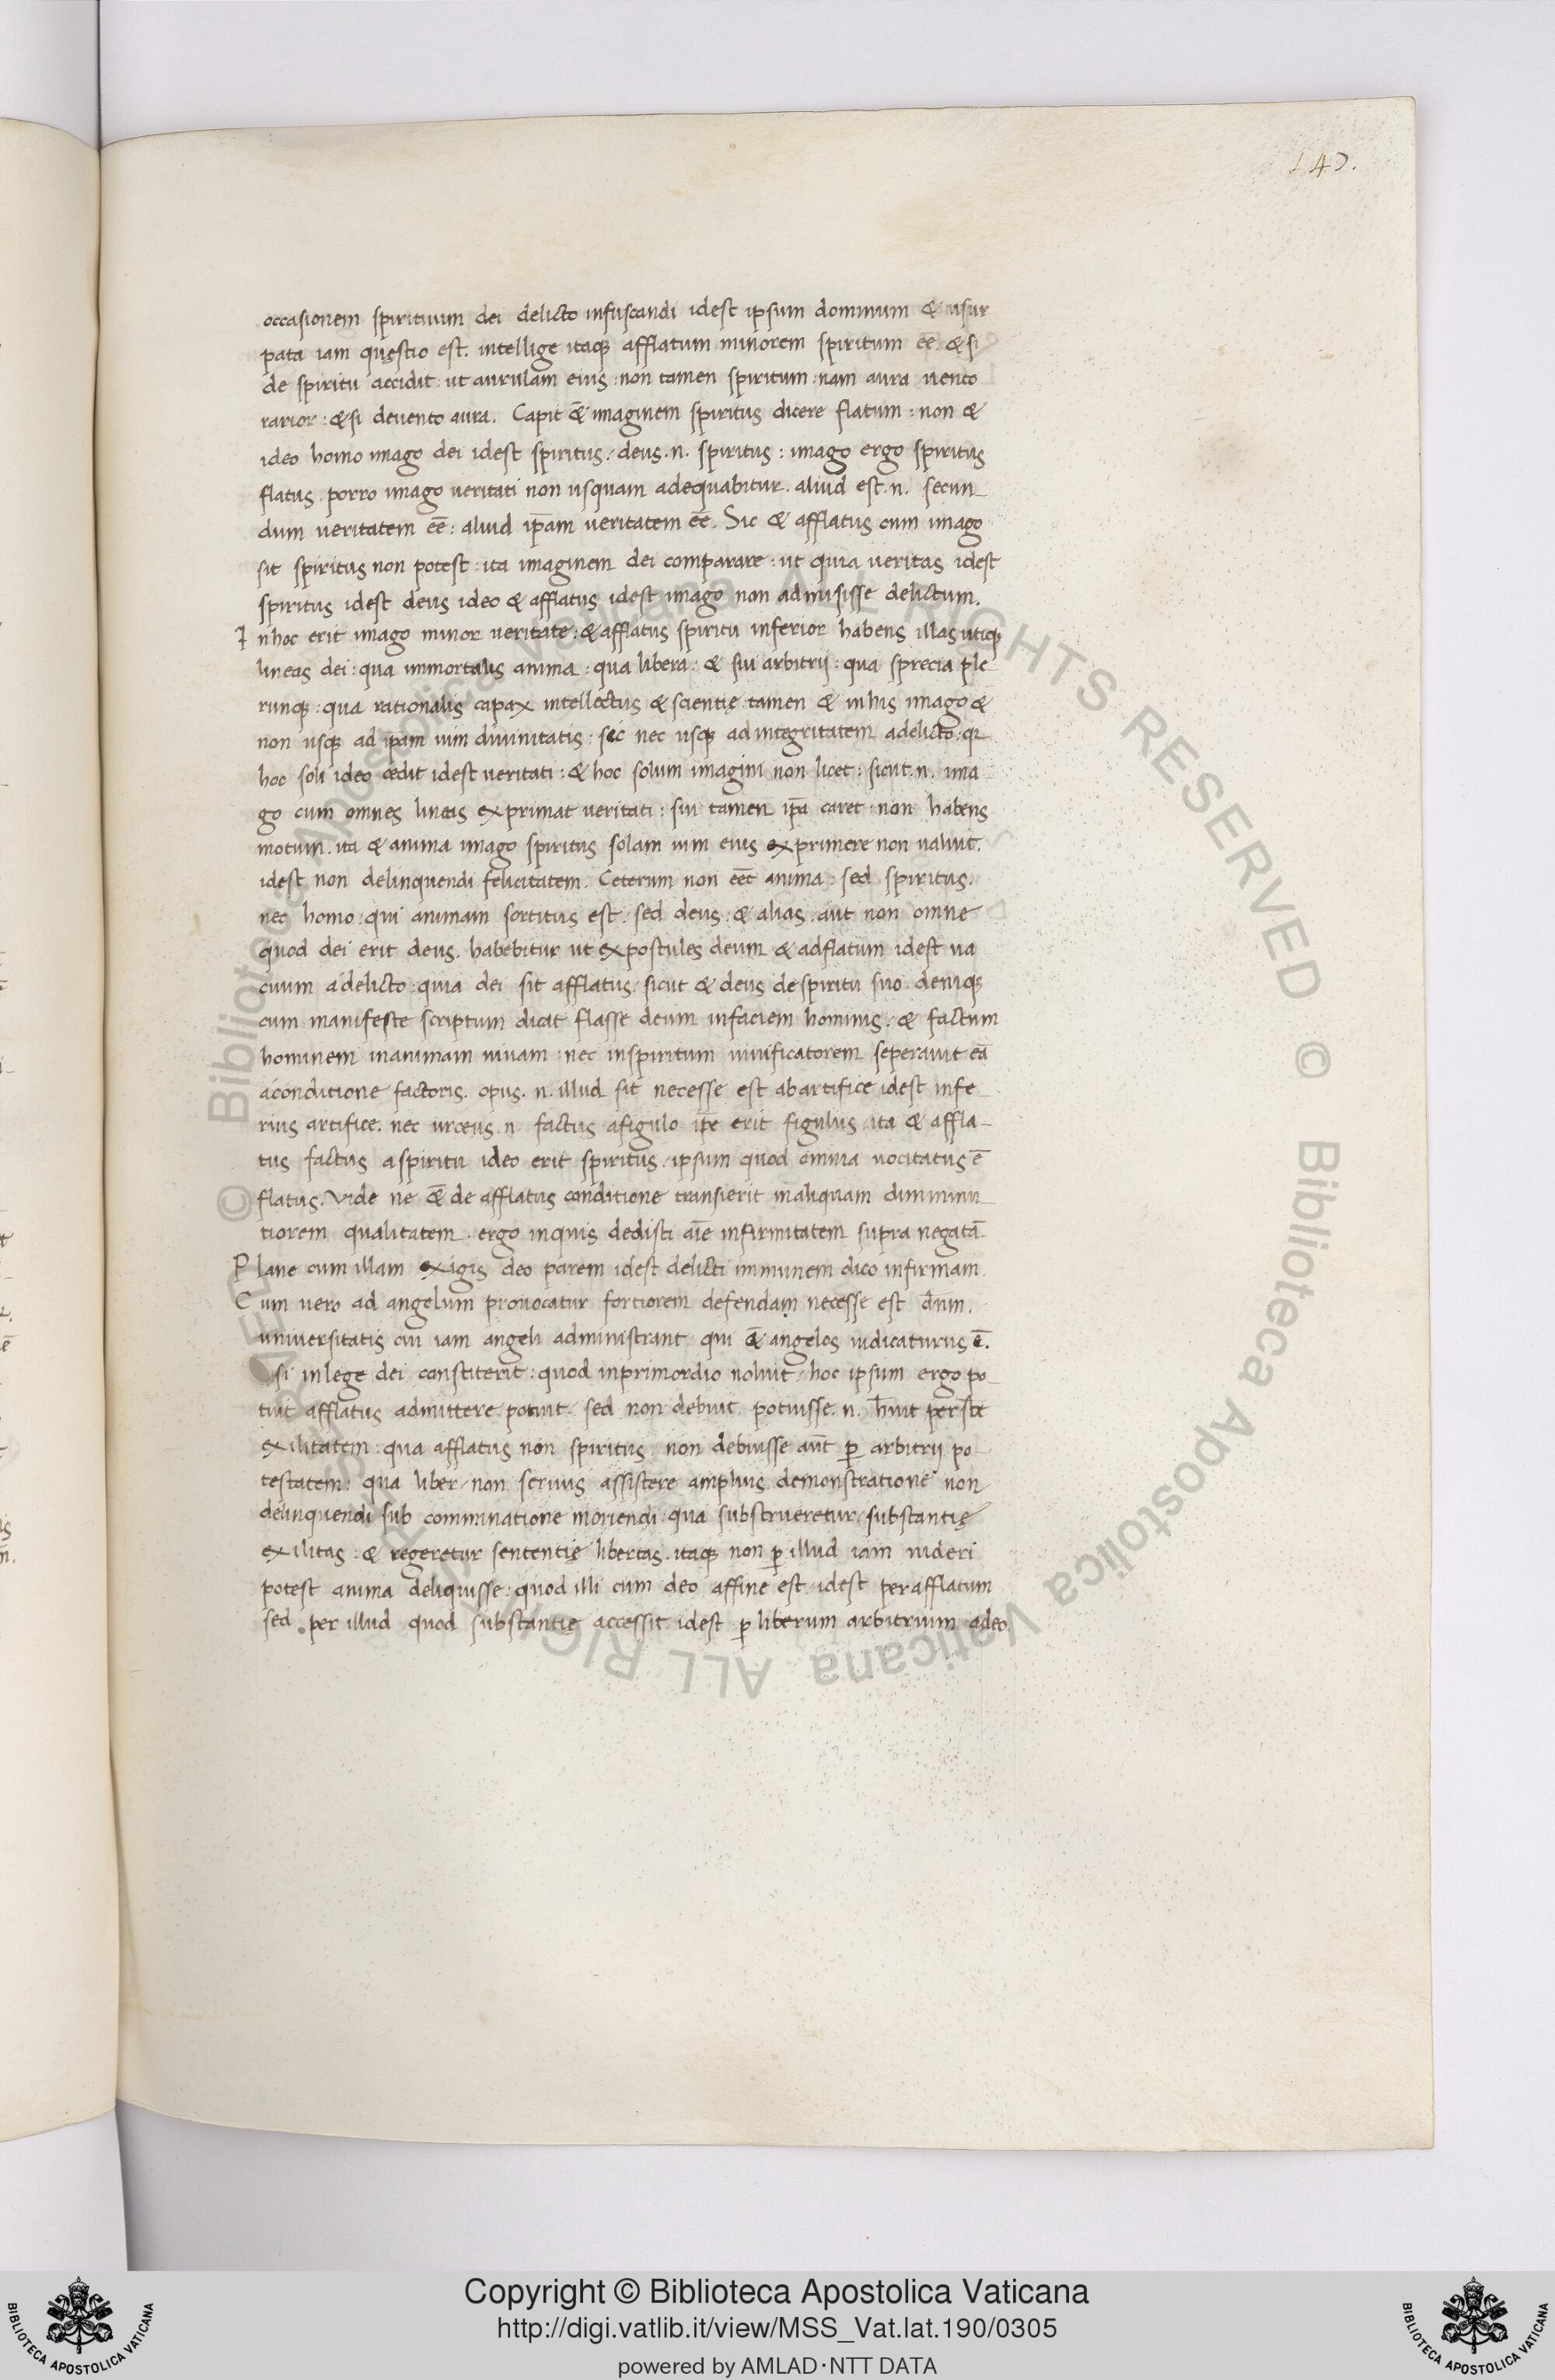 147.
occasionem spirituum dei delicto infuscandi idest ipsum dominum & usur
pata iam quęstio est. intellige itaqꝫ afflatum minorem spiritum eē. & si
de spiritu accidit : ut aurulam eius : non tamen spiritum : nam aura uento
rarior : & si deuento aura. Capit &̄ imaginem spiritus dicere flatum : non &
ideo homo imago dei idest spiritus. deus .n. spiritus : imago ergo spiritus
flatus. porro imago ueritati non usquam adequabitur. aliud est .n. secun
dum ueritatem eē : aliud ip̄am ueritatem eē. Sic & afflatus cum imago
sit spiritus non potest : ita imaginem dei comparare : ut quia ueritas idest
spiritus idest deus ideo & afflatus idest imago non admisisse delictum.
I nhoc erit imago minor ueritate : & afflatus spiritu inferior habens illas utiqꝫ
lineas dei : qua immortalis anima : qua libera : & sui arbitrij : qua sprecia ple
runqꝫ : qua rationalis capax intellectus & scientię tamen & inhis imago &
non usqꝫ ad ip̄am uim diuinitatis : sic nec usqꝫ adintegritatem adelicto : qꝛ
hoc soli ideo cedit idest ueritati : & hoc solum imagini non licet : sicut .n. ima
go cum omnes lineas exprimat ueritati : sui tamen ip̄a caret : non habens
motum. ita & anima imago spiritus solam uim eius exprimere non ualuit.
idest non delinquendi felicitatem. Ceterum non eēt anima : sed spiritus.
nec homo : qui animam sortitus est : sed deus : & alias. aut non omne
quod dei erit deus. habebitur ut expostules deum & adflatum idest ua
cuum adelicto : quia dei sit afflatus. sicut & deus despiritu suo. deniqꝫ
cum manifeste scriptum dicat flasse deum infaciem hominis. & factum
hominem inanimam uiuam : nec inspiritum uiuificatorem seperauit eā
aconditione factoris. opus .n. illud sit necesse est abartifice idest infe
rius artifice. nec urceus .n. factus afigulo ip̄e erit figulus. ita & affla-
tus factus aspiritu ideo erit spiritus. ipsum quod anima uocitatus ē
flatus. Vide ne &̄ de afflatus conditione transierit inaliquam diminu
tiorem qualitatem. ergo inquis dedisti aīe infirmitatem supra negatā
P lane cum illam exigis deo parem idest delicti immunem dico infirmam.
C um uero ad angelum prouocatur fortiorem defendam necesse est dn̄m.
uniuersitatis cui iam angeli administrant. qui &̄ angelos iudicaturus ē.
si inlege dei constiterit : quod inprimordio noluit. hoc ipsum ergo po
tuit afflatus admittere potuit. sed non debuit. potuisse .n. h̄uit per sbe
exilitatem : qua afflatus non spiritus. non debuisse aūt ꝑ arbitrij po
testatem : qua liber. non seruus assistere amplius demonstratione non
delinquendi sub comminatione moriendi : qua substrueretur substantię
exilitas : & regeretur sententię libertas. itaqꝫ non ꝑ illud iam uideri
potest anima deliquisse : quod illi cum deo affine est. idest perafflatum
sed per illud quod substantię accessit idest ꝑ liberum arbitrium adeo
Copyright © Biblioteca Apostolica Vaticana
http://digi.vatlib.it/view/MSS_Vat.lat.190/0305
powered by AMLAD·NTT DATA
BIBLIOTECA APOSTOLICA VATICANA
BIBLIOTECA APOSTOLICA VATICANA
© Biblioteca Apostolica Vaticana ALL RIGHTS RESERVED
© Biblioteca Apostolica Vaticana ALL RIGHTS RESERVED